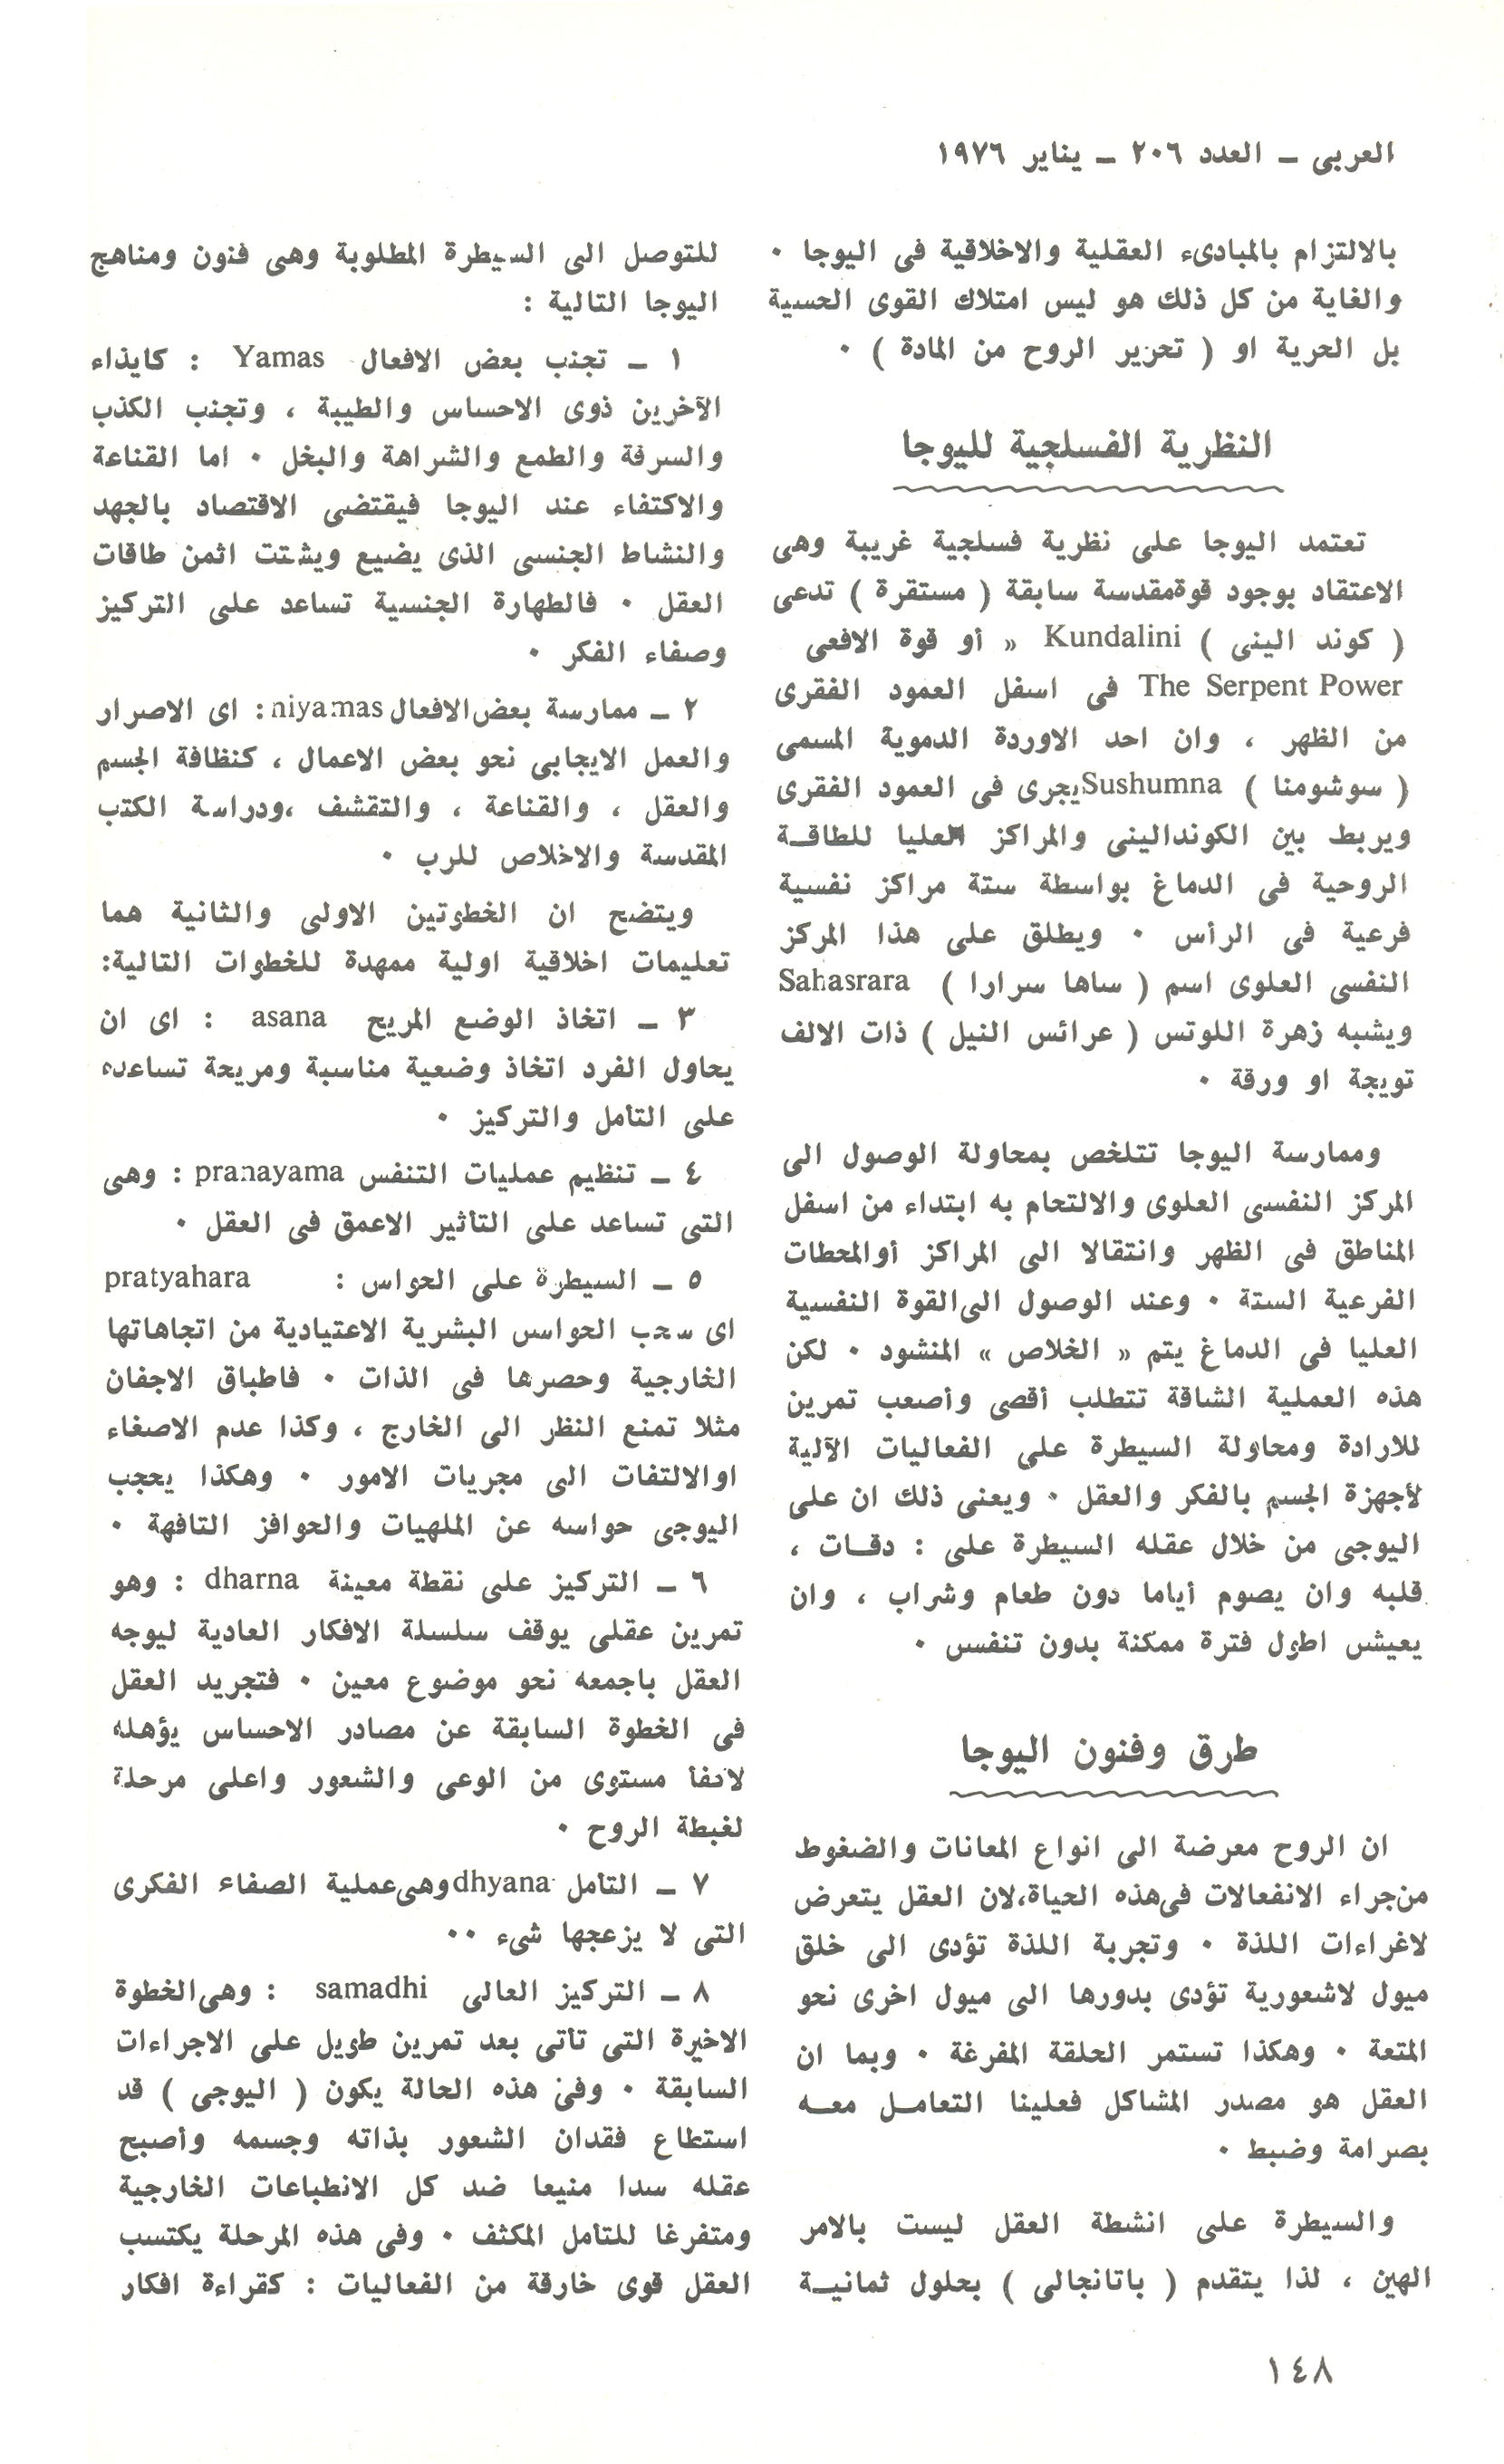 العربى – العدد ٢٠٦ – يناير ١٩٧٦
بالالتزام بالمبادىء العقلية والاخلاقية فى اليوجا ٠
والغاية من كل ذلك هو ليس امتلاك القوى الحسية
بل الحرية او ( تحرير الروح من المادة ) ٠
النظرية الفسلجية لليوجا
تعتمد اليوجا على نظرية فسلجية غريبة وهى
الاعتقاد بوجود قوةمقدسة سابقة ( مستقرة ) تدعى
( كوند الينى ) Kundalini « أو قوة الافعى
The Serpent Power فى اسفل العمود الفقرى
من الظهر ، وان احد الاوردة الدموية المسمى
( سوشومنا ) Sushumna يجرى فى العمود الفقرى
ويربط بين الكوندالينى والمراكز العليا للطاقـة
الروحية فى الدماغ بواسطة ستة مراكز نفسية
فرعية فى الرأس ٠ ويطلق على هذا المركز
النفسى العلوى اسم ( ساها سرارا ) Sahasrara
ويشبه زهرة اللوتس ( عرائس النيل ) ذات الالف
تويجة او ورقة ٠
وممارسة اليوجا تتلخص بمحاولة الوصول الى
المركز النفسى العلوى والالتحام به ابتداء من اسفل
المناطق فى الظهر وانتقالا الى المراكز أوالمحطات
الفرعية الستة ٠ وعند الوصول الىالقوة النفسية
العليا فى الدماغ يتم « الخلاص » المنشود ٠ لكن
هذه العملية الشاقة تتطلب أقصى وأصعب تمرين
للارادة ومحاولة السيطرة على الفعاليات الآلية
لأجهزة الجسم بالفكر والعقل ٠ ويعنى ذلك ان على
اليوجى من خلال عقله السيطرة على : دقـات ،
قلبه وان يصوم أياما دون طعام وشراب ، وان
يعيش اطول فترة ممكنة بدون تنفس ٠
طرق وفنون اليوجا
ان الروح معرضة الى انواع المعانات والضغوط
منجراء الانفعالات فىهذه الحياة،لان العقل يتعرض
لاغراءات اللذة ٠ وتجربة اللذة تؤدى الى خلق
ميول لاشعورية تؤدى بدورها الى ميول اخرى نحو
المتعة ٠ وهكذا تستمر الحلقة المفرغة ٠ وبما ان
العقل هو مصدر المشاكل فعلينا التعامـل معـه
بصرامة وضبط ٠
والسيطرة على انشطة العقل ليست بالامر
الهين ، لذا يتقدم ( باتانجالى ) بحلول ثمانيـة
للتوصل الى السيطرة المطلوبة وهى فنون ومناهج
اليوجا التالية :
١ – تجنب بعض الافعال Yamas : كايذاء
الآخرين ذوى الاحساس والطيبة ، وتجنب الكذب
والسرقة والطمع والشراهة والبخل ٠ اما القناعة
والاكتفاء عند اليوجا فيقتضى الاقتصاد بالجهد
والنشاط الجنسى الذى يضيع ويشتت اثمن طاقات
العقل ٠ فالطهارة الجنسية تساعد على التركيز
وصفاء الفكر ٠
٢ – ممارسة بعض الافعال niyamas : اى الاصرار
والعمل الايجابى نحو بعض الاعمال ، كنظافة الجسم
والعقل ، والقناعة ، والتقشف ،ودراسة الكتب
المقدسة والاخلاص للرب ٠
ويتضح ان الخطوتين الاولى والثانية هما
تعليمات اخلاقية اولية ممهدة للخطوات التالية:
٣ – اتخاذ الوضع المريح asana : اى ان
يحاول الفرد اتخاذ وضعية مناسبة ومريحة تساعده
على التأمل والتركيز ٠
٤ – تنظيم عمليات التنفس pranayama : وهى
التى تساعد على التأثير الاعمق فى العقل ٠
٥ – السيطرة على الحواس : pratyahara
اى سحب الحواس البشرية الاعتيادية من اتجاهاتها
الخارجية وحصرها فى الذات ٠ فاطباق الاجفان
مثلا تمنع النظر الى الخارج ، وكذا عدم الاصغاء
اوالالتفات الى مجريات الامور ٠ وهكذا يحجب
اليوجى حواسه عن الملهيات والحوافز التافهة ٠
٦ – التركيز على نقطة معينة dharna : وهو
تمرين عقلى يوقف سلسلة الافكار العادية ليوجه
العقل باجمعه نحو موضوع معين ٠ فتجريد العقل
فى الخطوة السابقة عن مصادر الاحساس يؤهله
مستوى من الوعى والشعور واعلى مرحلة
لغبطة الروح ٠
٧ – التأمل dhyana وهىعملية الصفاء الفكرى
التى لا يزعجها شىء ٠٠
٨ – التركيز العالى samadhi : وهىالخطوة
الاخيرة التى تأتى بعد تمرين طويل على الاجراءات
السابقة ٠ وفى هذه الحالة يكون ( اليوجى ) قد
استطاع فقدان الشعور بذاته وجسمه وأصبح
عقله سدا منيعا ضد كل الانطباعات الخارجية
ومتفرغا للتأمل المكثف ٠ وفى هذه المرحلة يكتسب
العقل قوى خارقة من الفعاليات : كقراءة افكار
١٤٨